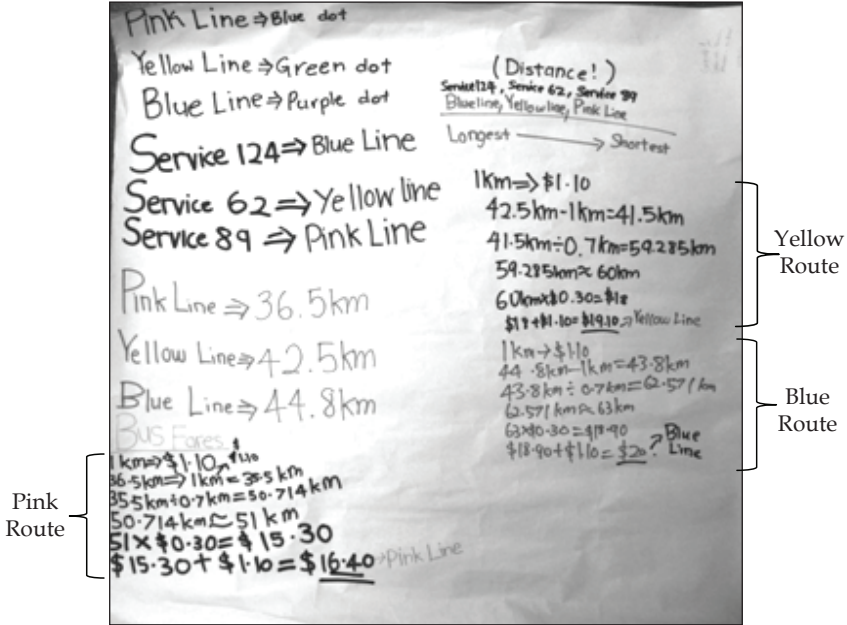 Pink Line ⇒ Blue dot
Yellow Line ⇒ Green dot
Blue Line ⇒ Purple dot
Service 124 ⇒ Blue Line
Service 62 ⇒ Yellow line
Service 89 ⇒ Pink Line
Pink Line ⇒ 36.5km
Yellow Line ⇒ 42.5km
Blue Line ⇒ 44.8km
Bus Fares
Pink Route
1km ⇒ $1.10 $1.10
36.5km ⇒ 1km = 35.5km
35.5km ÷ 0.7km = 50.714km
50.714km ≈ 51 km
51 × $0.30 = $15.30
$15.30 + $1.10 = $16.40 → Pink Line
(Distance!)
Service 124, Service 62, Service 89
Blue line, Yellow line, Pink Line
Longest → Shortest
Yellow Route
1km ⇒ $1.10
42.5km - 1km = 41.5km
41.5km ÷ 0.7km = 59.285km
59.285km ≈ 60km
60km × $0.30 = $18
$18 + $1.10 = $19.10 → Yellow Line
Blue Route
1km → $1.10
44.8km - 1km = 43.8km
43.8km ÷ 0.7km = 62.571km
62.571km ≈ 63km
63 × $0.30 = $18.90
$18.90 + $1.10 = $20 → Blue Line